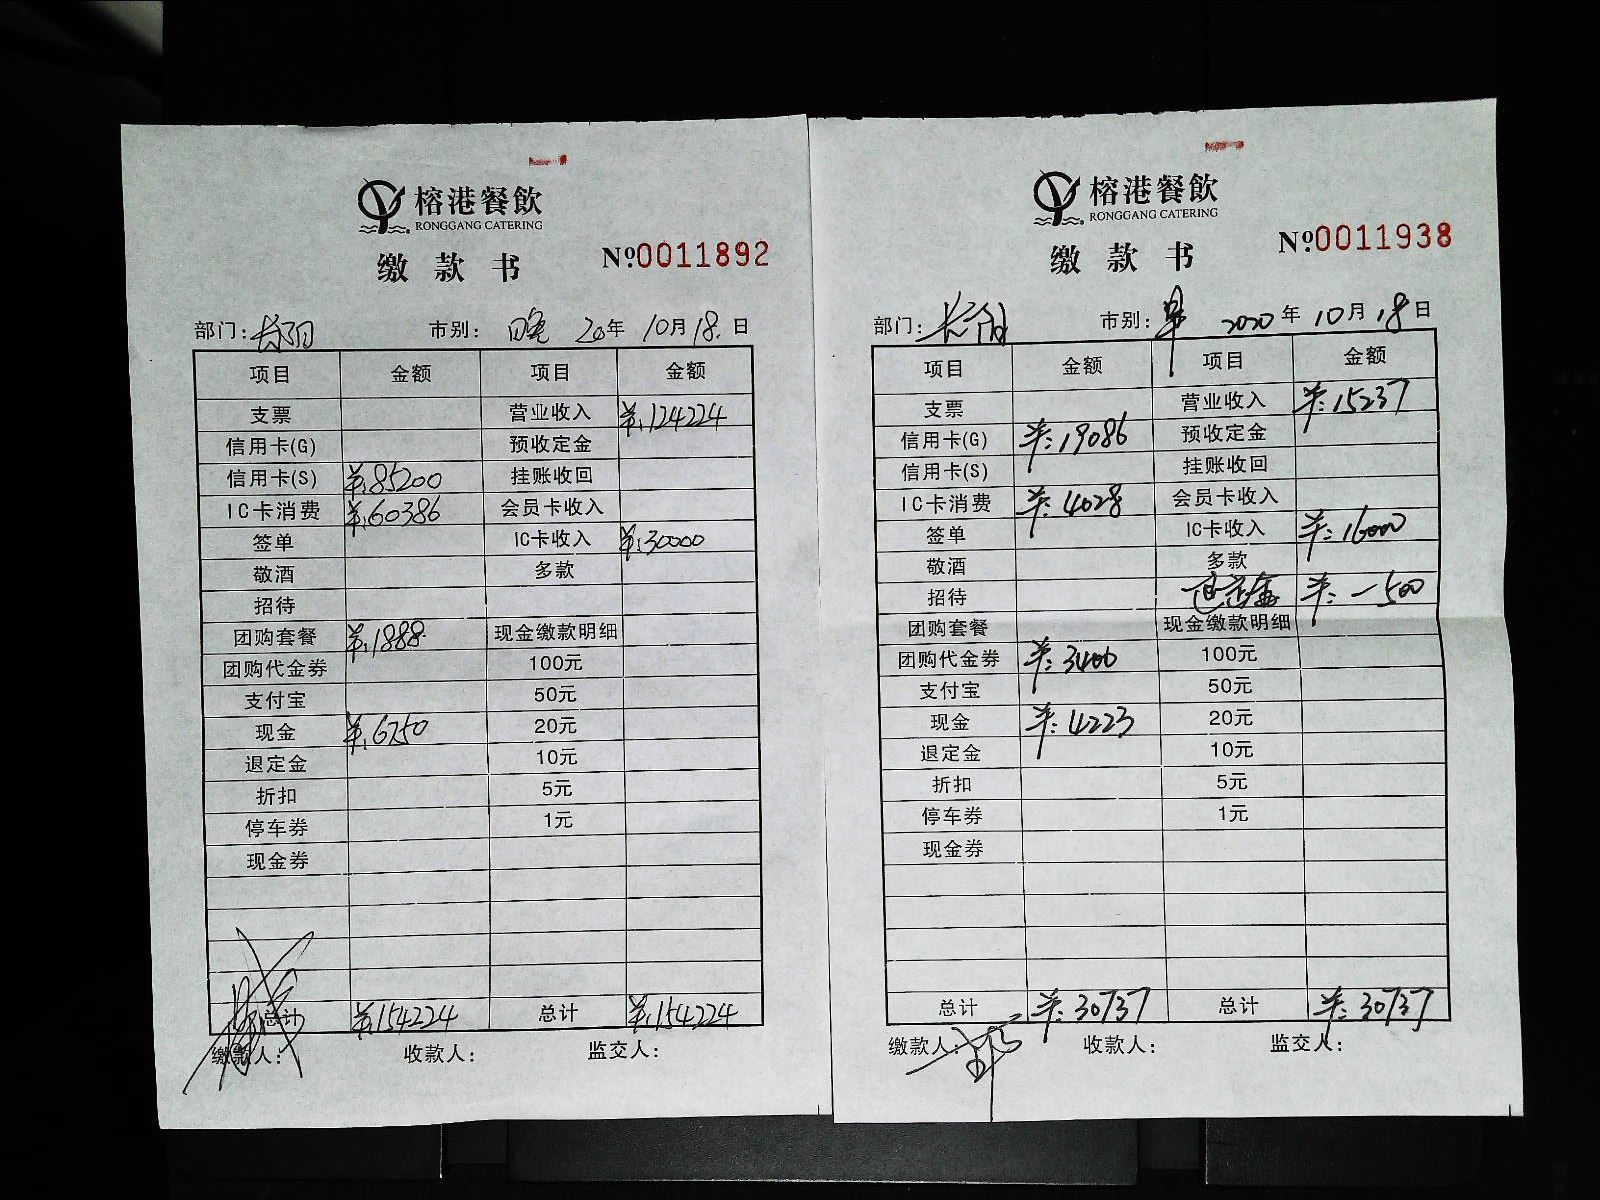 榕港餐飲
RONGGANG CATERING
缴款书 №0011892
部门：长阳 市别：晚 20年10月18.日
项目 金额 项目 金额
支票 营业收入 ¥:124224
信用卡(G) 预收定金
信用卡(S) ¥:85200 挂账收回
IC卡消费 ¥:60386 会员卡收入
签单 IC卡收入 ¥:30000
敬酒 多款
招待
团购套餐 ¥:1888 现金缴款明细
团购代金券 100元
支付宝 50元
现金 ¥:6750 20元
退定金 10元
折扣 5元
停车券 1元
现金券
总计 ¥:154224 总计 ¥:154224
缴款人： 收款人： 监交人：
榕港餐飲
RONGGANG CATERING
缴款书 №0011938
部门：长阳 市别：早 2020年10月18日
项目 金额 项目 金额
支票 营业收入 ¥:15237
信用卡(G) ¥:19086 预收定金
信用卡(S) 挂账收回
IC卡消费 ¥:4028 会员卡收入
签单 IC卡收入 ¥:16000
敬酒 多款
招待 ¥:-500
团购套餐 现金缴款明细
团购代金券 ¥:3400 100元
支付宝 50元
现金 ¥:4223 20元
退定金 10元
折扣 5元
停车券 1元
现金券
总计 ¥:30737 总计 ¥:30737
缴款人： 收款人： 监交人：